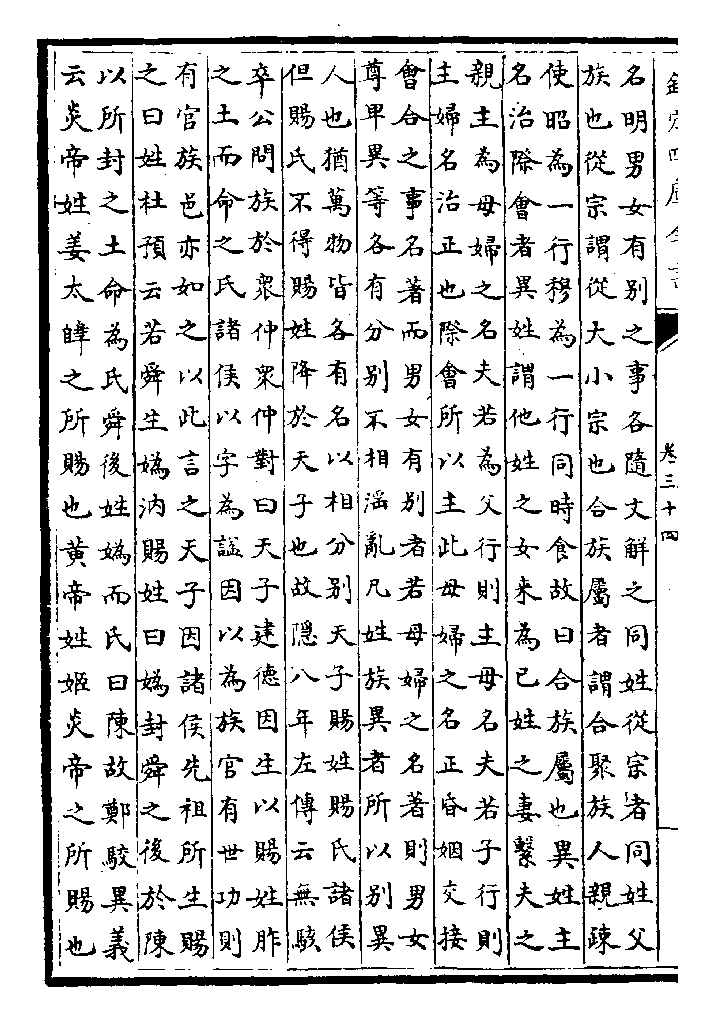 欽定四庫全書
卷三十四
名明男女有別之事各隨文解之同姓從宗者同姓父
族也從宗謂從大小宗也合族屬者謂合聚族人親疎
使昭為一行穆為一行同時食故曰合族屬也異姓主
名治際會者異姓謂他姓之女来為已姓之妻繫夫之
親主為母婦之名夫若為父行則主母名夫若子行則
主婦名治正也際會所以主此母婦之名正昏姻交接
會合之事名著而男女有別者若母婦之名著則男女
尊卑異等各有分別不相淫亂凡姓族異者所以別異
人也猶萬物皆各有名以相分別天子賜姓賜氏諸侯
但賜氏不得賜姓降於天子也故隠八年左傳云無駭
卒公問族於衆仲衆仲對曰天子建德因生以賜姓胙
之土而命之氏諸侯以字為諡因以為族官有世功則
有官族邑亦如之以此言之天子因諸侯先祖所生賜
之曰姓杜預云若舜生媯汭賜姓曰媯封舜之後於陳
以所封之土命為氏舜後姓媯而氏曰陳故鄭駮異義
云炎帝姓姜太皡之所賜也黄帝姓姬炎帝之所賜也